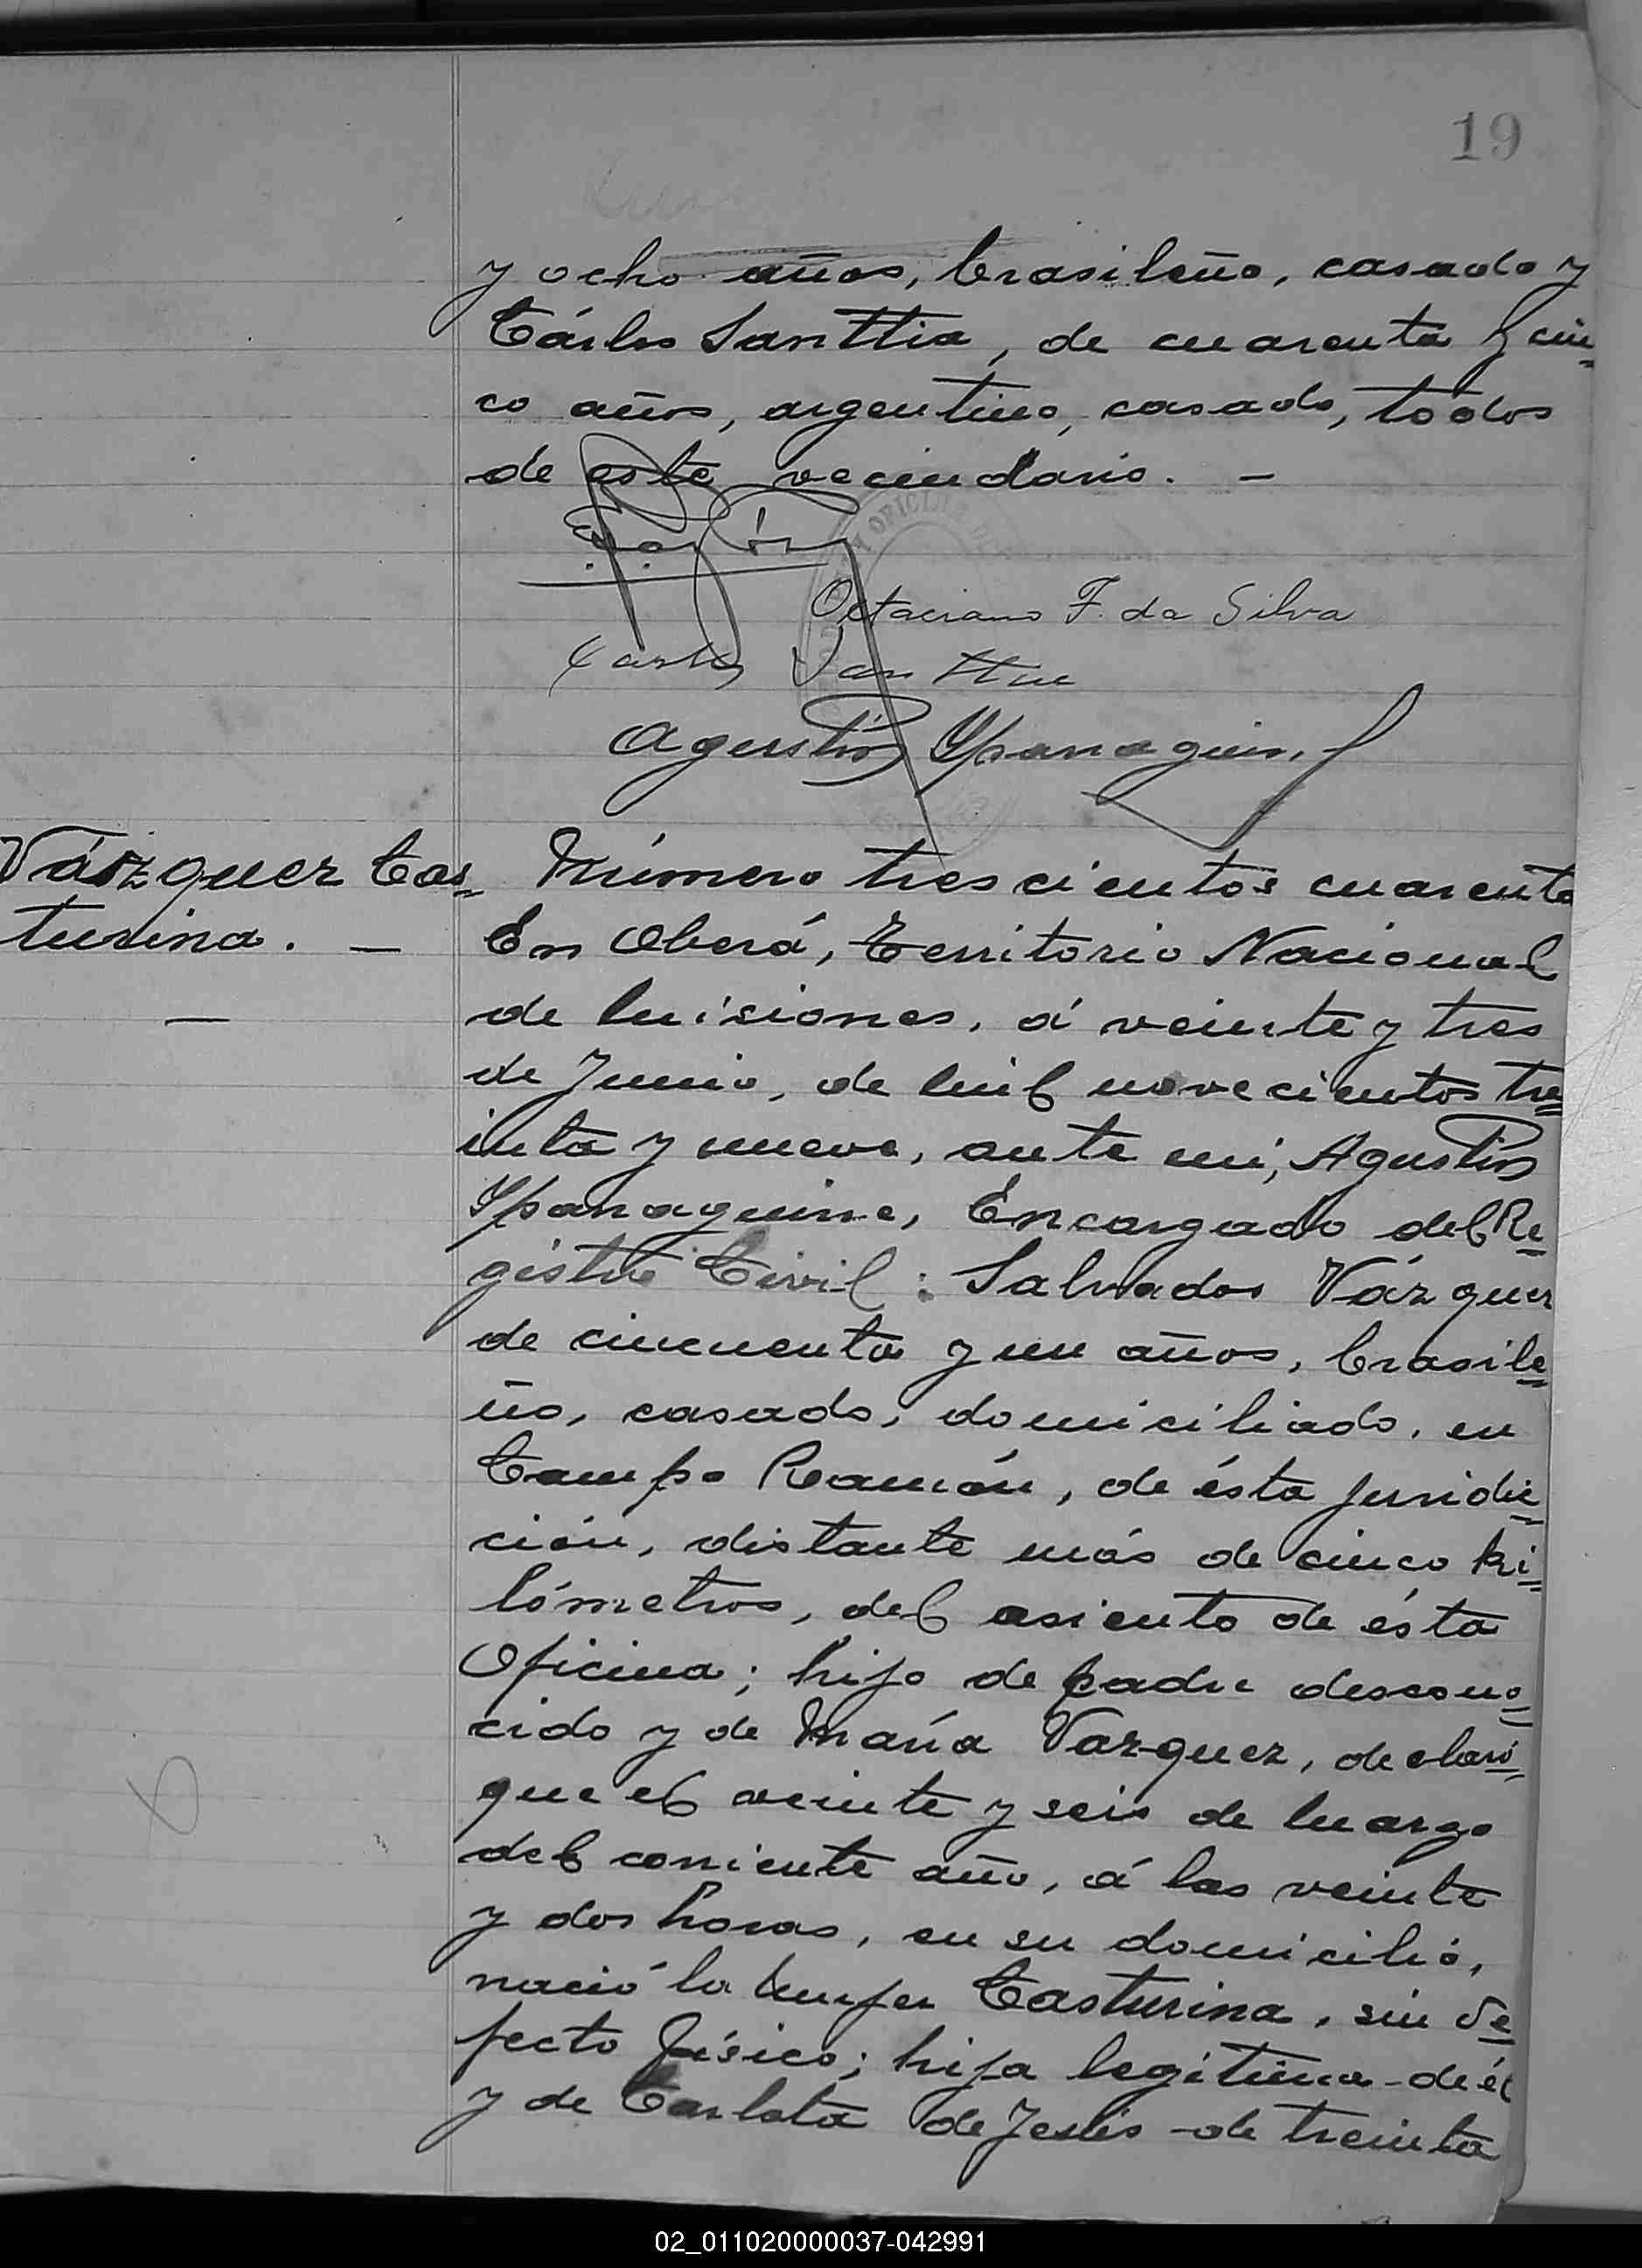 19
y ocho años, brasileño, casado y
Cárlos Santtia, de cuarenta y cin=
co años, argentino, casado, todos
de este vecindario. —
Octaciano F. da Silva
Carlos Santtia
Agustín Yparraguirre
Vázquez Cas=
turina. —
—
Número trescientos cuarenta
En Oberá, Territorio Nacional
de Misiones, á veinte y tres
de Junio, de mil novecientos tre=
inta y nueve, ante mí, Agustín
Yparraguirre, Encargado del Re=
gistro Civil: Salvador Vázquez
de cincuenta y un años, brasile=
ño, casado, domiciliado, en
Campo Ramón, de ésta juridic=
ción, distante más de cinco ki=
lómetros, del asiento de ésta
Oficina; hijo de padre descono=
cido y de María Vazquez, declaró=
que el veinte y seis de Marzo
del corriente año, á las veinte
y dos horas, en su domicilió,
nació la Mujer Casturina, sin de=
fecto físico; hija legítima-de él
y de Carlota de Jesús -de treinta
02_011020000037-042991